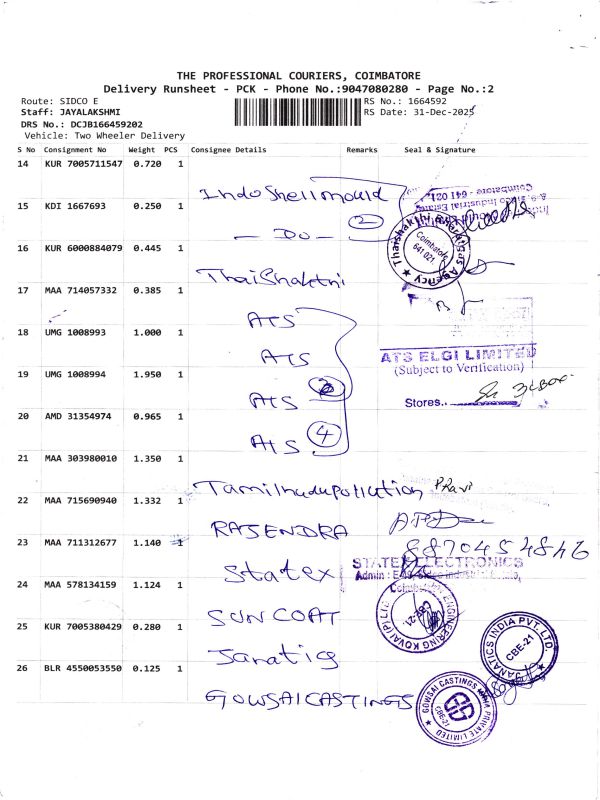 THE PROFESSIONAL COURIERS, COIMBATORE
Delivery Runsheet - PCK - Phone No.:9047080280 - Page No.:2
Route: SIDCO E
RS No.: 1664592
Staff: JAYALAKSHMI
RS Date: 31-Dec-2025
DRS No.: DCJB166459202
Vehicle: Two Wheeler Delivery
S No Consignment No Weight PCS Consignee Details Remarks Seal & Signature
14 KUR 7005711547 0.720 1
Indo Shell mould
15 KDI 1667693 0.250 1
— Do — 2
16 KUR 6000884079 0.445 1
Thaishakthi
Thaishakthi Agency
Coimbatore
641 021.
17 MAA 714057332 0.385 1
ATS
18 UMG 1008993 1.000 1
ATS
ATS ELGI LIMITED
(Subject to Verification)
19 UMG 1008994 1.950 1
ATS
Stores..
20 AMD 31354974 0.965 1
ATS 4
21 MAA 303980010 1.350 1
Tamilnadu pollution
22 MAA 715690940 1.332 1
RAJENDRA
23 MAA 711312677 1.140 1
8870454846
Statex
STATEX ELECTRONICS
24 MAA 578134159 1.124 1
SUN COAT
ENGINEERING KOVAI (P) LTD
25 KUR 7005380429 0.280 1
Janatics
JANATICS INDIA PVT. LTD.
CBE-21
26 BLR 4550053550 0.125 1
GOWSAI CASTINGS
GOWSAI CASTINGS INDIA PRIVATE LIMITED
CBE-21